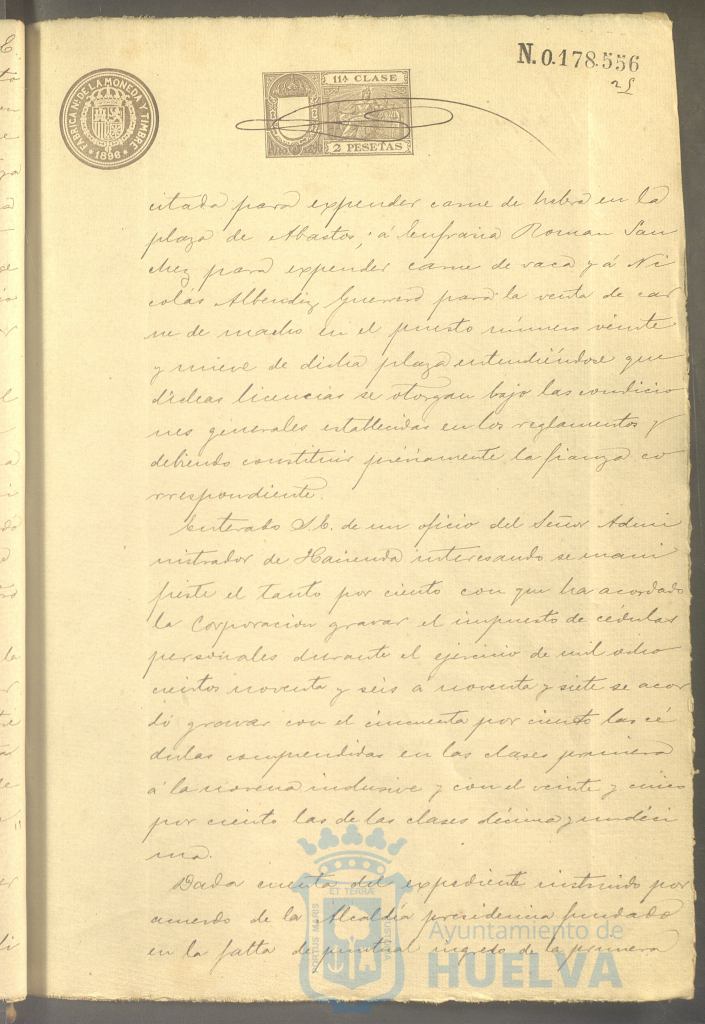 N. 0.178.556
25
FÁBRICA NAL. DE LA MONEDA Y TIMBRE
* 1896 *
11ª CLASE
2 PESETAS
citada para expender carne de hebra en la
plaza de Abastos; á Eufracia Roman San
chez para expender carne de vaca y á Ni
colás Albendiz Guerrero para la venta de car
ne de macho en el puesto número veinte
y nueve de dicha plaza entendiéndose que
dichas licencias se otorgan bajo las condicio
nes generales establecidas en los reglamentos y
debiendo constituir préviamente la fianza co
rrespondiente.
Enterado S.E. de un oficio del Señor Admi
nistrador de Hacienda interesando se mani
fieste el tanto por ciento con que ha acordado
la Corporacion gravar el impuesto de cédulas
personales durante el ejercicio de mil ocho
cientos noventa y seis á noventa y siete se acor
dó gravar con el cincuenta por ciento las cé
dulas comprendidas en las clases primera
á la novena inclusive y con el veinte y cinco
por ciento las de las clases décima y undéci
ma.
Dada cuenta del expediente instruido por
acuerdo de la Alcaldía presidencia fundado
en la falta de puntual ingreso de la primera
PORTUS MARIS
ET TERRÆ
CUSTODIA
Ayuntamiento de
HUELVA